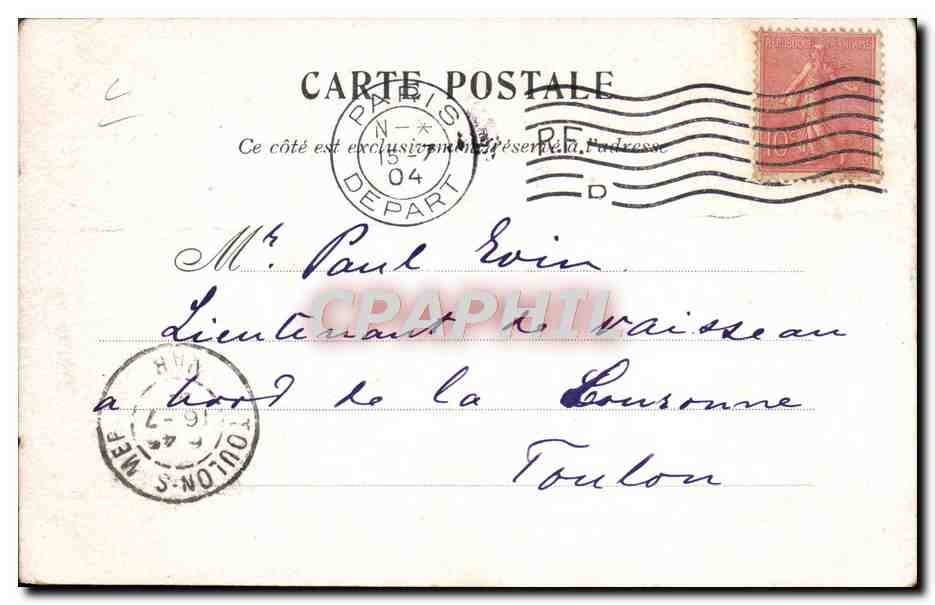 CARTE POSTALE
Ce côté est exclusivement réservé à l'adresse
PARIS
N-*
15-7
04
DEPART
R.F.
D
REPUBLIQUE FRANCAISE
10c
Mr. Paul Evin
Lieutenant de vaisseau
a bord de la Couronne
Toulon
CRAPHIL
TOULON-S-MER
VAR
16-7